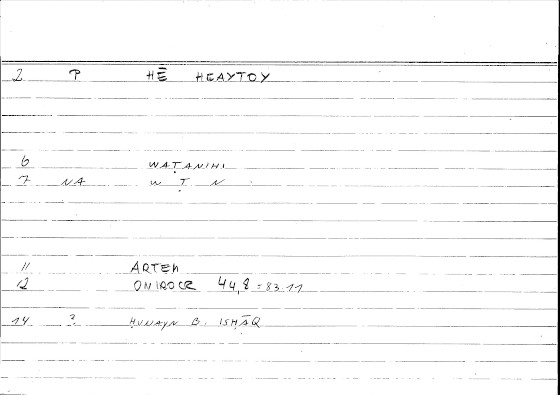 2 P HĒ HEAYTOY
6 WAṬANIHI
7 NA W Ṭ N
11 ARTEM
12 ONIROCR 44,8 = 83.11
14 ? ḤUNAYN B. ISḤĀQ